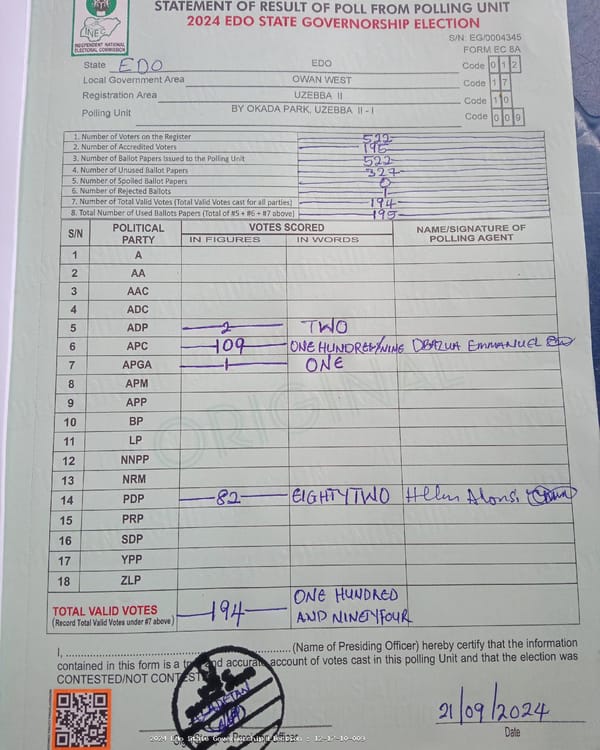 STATEMENT OF RESULT OF POLL FROM POLLING UNIT
2024 EDO STATE GOVERNORSHIP ELECTION
INEC
INDEPENDENT NATIONAL ELECTORAL COMMISSION
S/N: EG/0004345
FORM EC 8A
State EDO EDO Code 012
Local Government Area OWAN WEST Code 17
Registration Area UZEBBA II Code 10
Polling Unit BY OKADA PARK, UZEBBA II - I Code 009
1. Number of Voters on the Register 522
2. Number of Accredited Voters 195
3. Number of Ballot Papers Issued to the Polling Unit 522
4. Number of Unused Ballot Papers 327
5. Number of Spoiled Ballot Papers 0
6. Number of Rejected Ballots 1
7. Number of Total Valid Votes (Total Valid Votes cast for all parties) 194
8. Total Number of Used Ballots Papers (Total of #5 + #6 + #7 above) 195
S/N POLITICAL PARTY VOTES SCORED NAME/SIGNATURE OF POLLING AGENT
IN FIGURES IN WORDS
1 A
2 AA
3 AAC
4 ADC
5 ADP 2 TWO
6 APC 109 ONE HUNDRED/NINE EMMANUEL
7 APGA 1 ONE
8 APM
9 APP
10 BP
11 LP
12 NNPP
13 NRM
14 PDP 82 EIGHTYTWO Helen
15 PRP
16 SDP
17 YPP
18 ZLP
ORIGINAL
TOTAL VALID VOTES 194 ONE HUNDRED AND NINETYFOUR
(Record Total Valid Votes under #7 above)
I, (Name of Presiding Officer) hereby certify that the information
contained in this form is a true and accurate account of votes cast in this polling Unit and that the election was
CONTESTED/NOT CONTESTED
21/09/2024
Date
2024 Edo State Governorship Election : 12-17-10-009